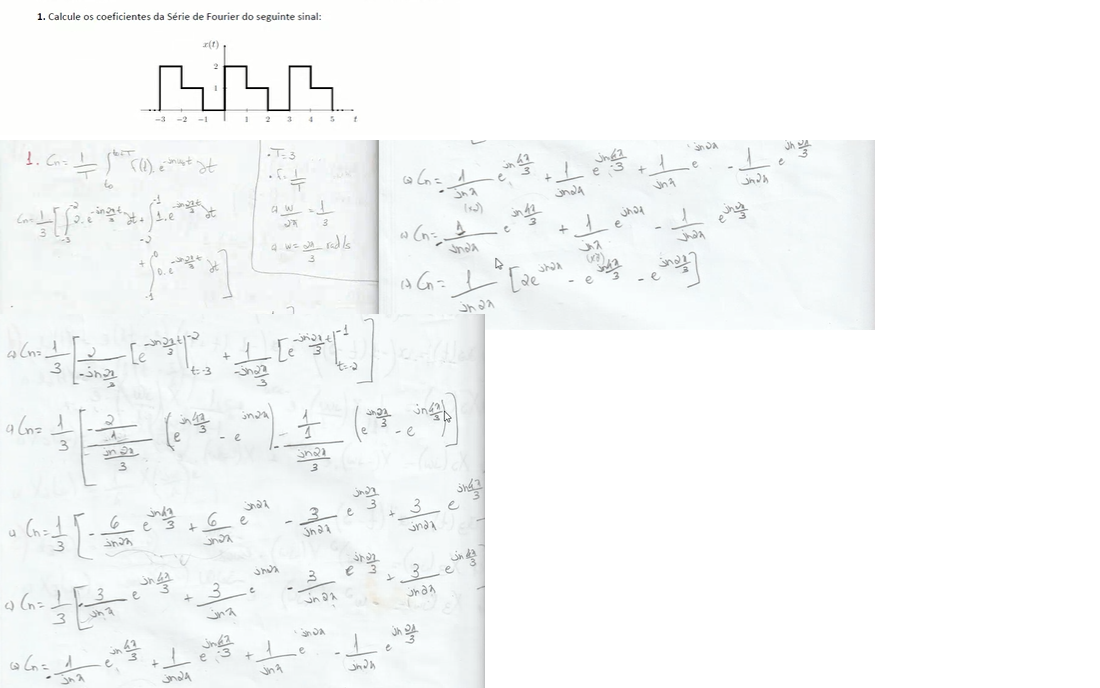 1. Calcule os coeficientes da Série de Fourier do seguinte sinal:
x(t)
2
1
-3 -2 -1 1 2 3 4 5 t
1. Cn = 1/T ∫_{t0}^{t0+T} f(t) . e^{-jnω0t} dt
Cn = 1/3 [ ∫_{-3}^{-2} 2. e^{-jn2πt/3} dt + ∫_{-2}^{-1} 1. e^{-jn2πt/3} dt
+ ∫_{-1}^{0} 0. e^{-jn2πt/3} dt ]
. T=3
. f = 1/T
w/2π = 1/3
w = 2π/3 rad/s
Cn = 1/3 [ 2/(-jn2π/3) [ e^{-jn2πt/3} |_{t=-3}^{-2} + 1/(-jn2π/3) [ e^{-jn2πt/3} |_{t=-2}^{-1} ]
Cn = 1/3 [ -2/1/(jn2π/3) ( e^{jn4π/3} - e^{jn2π} ) - 1/1/(jn2π/3) ( e^{jn2π/3} - e^{jn4π/3} ) ]
Cn = 1/3 [ -6/jn2π e^{jn4π/3} + 6/jn2π e^{jn2π} - 3/jn2π e^{jn2π/3} + 3/jn2π e^{jn4π/3}
Cn = 1/3 [ -3/jnπ e^{jn4π/3} + 3/jnπ e^{jn2π} - 3/jn2π e^{jn2π/3} + 3/jn2π e^{jn4π/3}
Cn = -1/jnπ e^{jn4π/3} + 1/jn2π e^{jn4π/3} + 1/jnπ e^{jn2π} - 1/jn2π e^{jn2π/3}
Cn = -1/jnπ e^{jn4π/3} + 1/jn2π e^{jn4π/3} + 1/jnπ e^{jn2π} - 1/jn2π e^{jn2π/3}
(x2)
Cn = -1/jn2π e^{jn4π/3} + 1/jnπ e^{jn2π} - 1/jn2π e^{jn2π/3}
(x2)
Cn = 1/jn2π [ 2e^{jn2π} - e^{jn4π/3} - e^{jn2π/3} ]